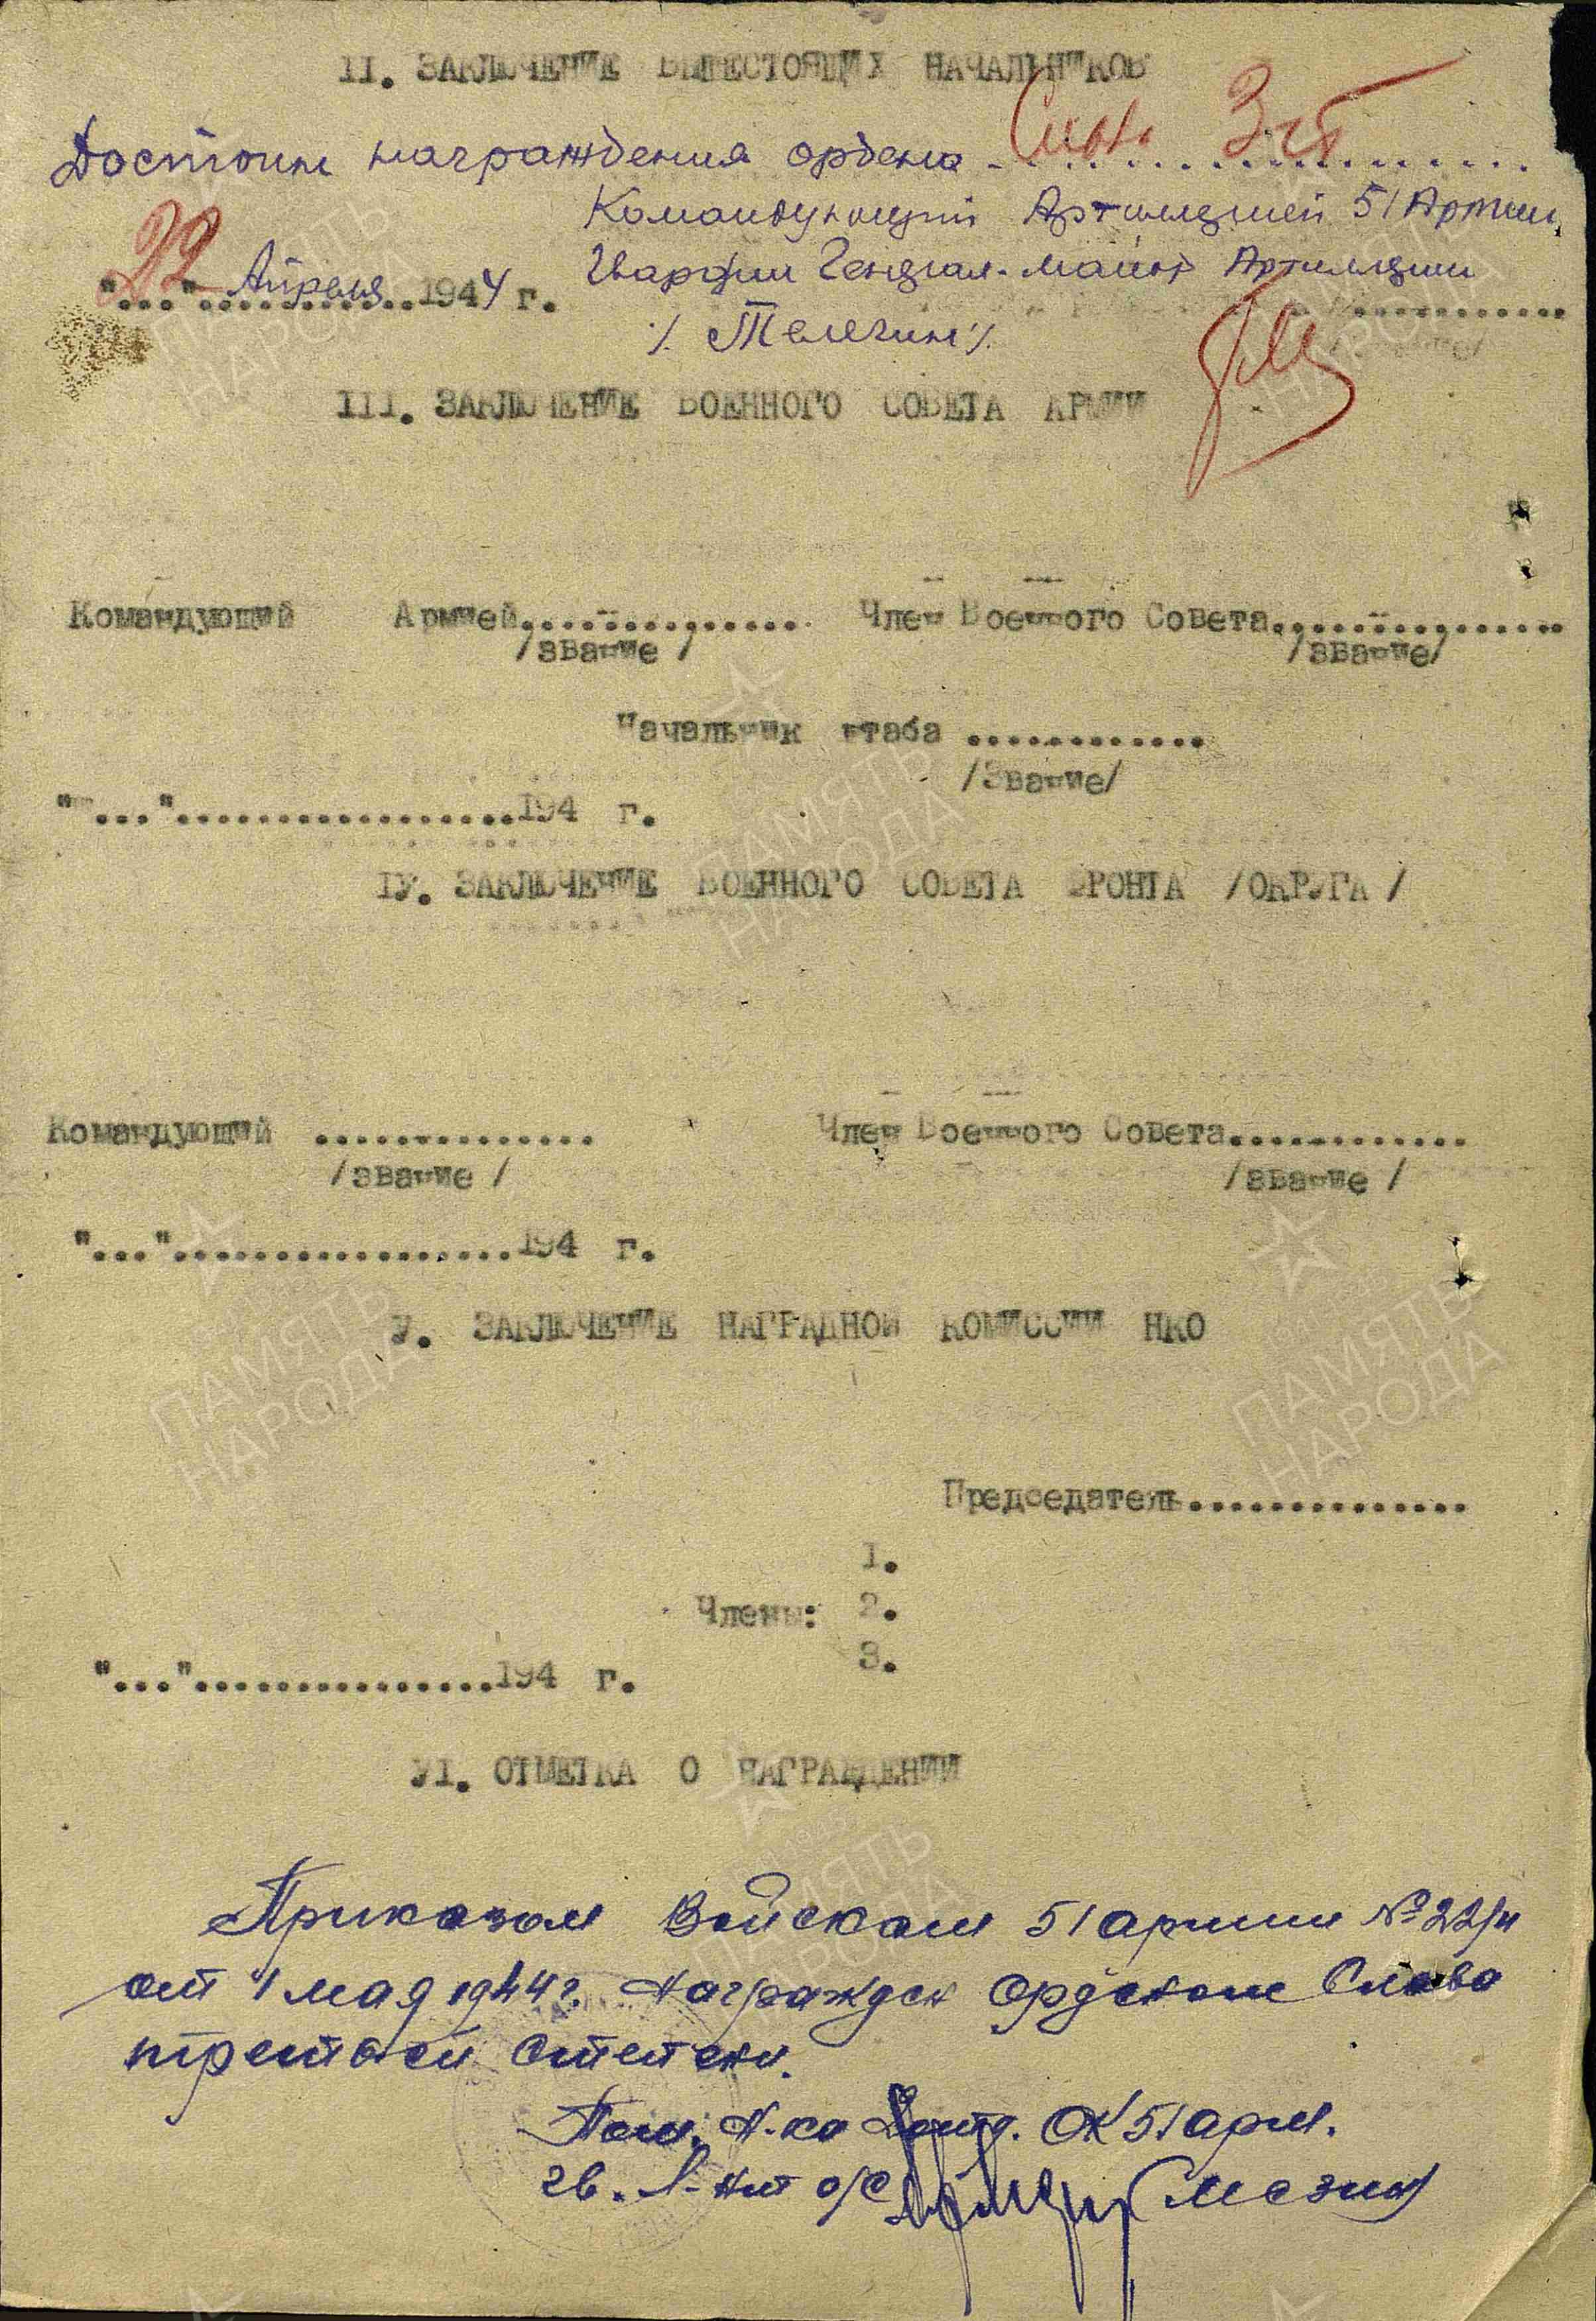 II. ЗАКЛЮЧЕНИЕ ВЫШЕСТОЯЩИХ НАЧАЛЬНИКОВ
Достоин награждения ордена - Славы 3 ст
Командующий Артиллерией 51 Армии
"22" Апреля 1944 г. Гвардии Генерал-майор Артиллерии
/. Телегин /.
III. ЗАКЛЮЧЕНИЕ ВОЕННОГО СОВЕТА АРМИИ
Командующий Армией............... Член Военного Совета...............
/звание / /звание/
Начальник штаба ............
/Звание/
"...".................194 г.
IУ. ЗАКЛЮЧЕНИЕ ВОЕННОГО СОВЕТА ФРОНТА /ОКРУГА /
Командующий .............. Член Военного Совета............
/звание / /звание /
"...".................194 г.
У. ЗАКЛЮЧЕНИЕ НАГРАДНОЙ КОМИССИИ НКО
Председатель..............
1.
Члены: 2.
3.
"..."...............194 г.
УI. ОТМЕТКА О НАГРАЖДЕНИИ
Приказом Войскам 51 армии №22/н
от 1 мая 1944г. Награжден Орденом Слава
третьей степени.
Пом. Н-ка отд. ОК 51 арм.
гв. Л-нт а/с (Мезин)
ПАМЯТЬ
НАРОДА